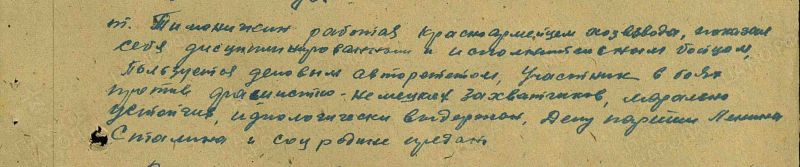 т. Тимонижкин работая красноармейцем хозвзвода, показал
себя дисциплинированным и исполнительным бойцом,
Пользуется деловым авторитетом, Участник в боях
против фашистко-немецких захватчиков, морально
устойчив, идиологически выдержан, Делу партии Ленина
Сталина и соц родине предан